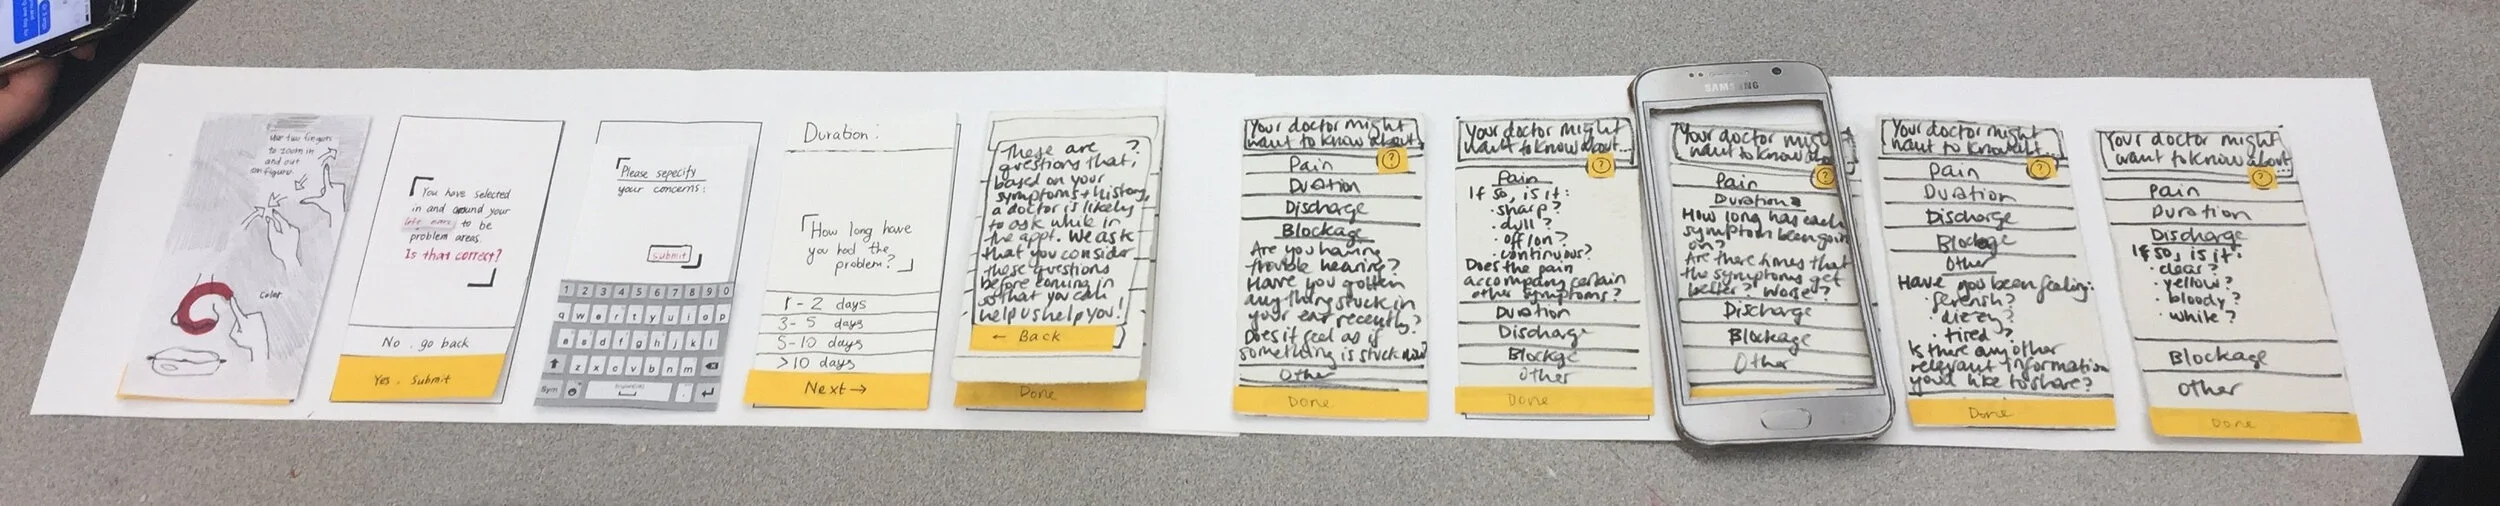 Use two fingers
to zoom in
and out
on figure
Color
You have selected
in and around your
left ear to be
problem areas.
Is that correct?
No, go back
Yes, Submit
Please sepecify
your concerns:
submit
1 2 3 4 5 6 7 8 9 0
q w e r t y u i o p
a s d f g h j k l
z x c v b n m
Sym
English(UK)
Duration:
How long have
you had the
problem?
1 - 2 days
3 - 5 days
5 - 10 days
>10 days
Next →
These are ?
questions that,
based on your
symptoms + history,
a doctor is likely
to ask while in
the appt. We ask
that you consider
these questions
before coming in
so that you can
help us help you!
← Back
Done
Your doctor might
want to know about...
?
Pain
Duration
Discharge
Blockage
Are you having
trouble hearing?
Have you gotten
anything stuck in
your ear recently?
Does it feel as if
something is stuck now?
Other
Done
Your doctor might
want to know about...
?
Pain
If so, is it:
· sharp?
· dull?
· off/on?
· continuous?
Does the pain
accompany certain
other symptoms?
Duration
Discharge
Blockge
Other
Done
SAMSUNG
Your doctor might
want to know abo
?
Pain
Duration
How long has each
symptom been going
on?
Are there times that
the symptoms get
better? Worse?
Discharge
Blockage
Other
Your doctor might
want to know abt...
?
Pain
Duration
Discharge
Blockage
Other
Have you been feeling:
· feverish?
· diezzy?
· tired?
Is there any other
relevant information
you'd like to share?
Done
Your doctor might
want to know about...
?
Pain
Duration
Discharge
If so, is it:
· clear?
· yellow?
· bloody?
· while?
Blockage
Other
Done